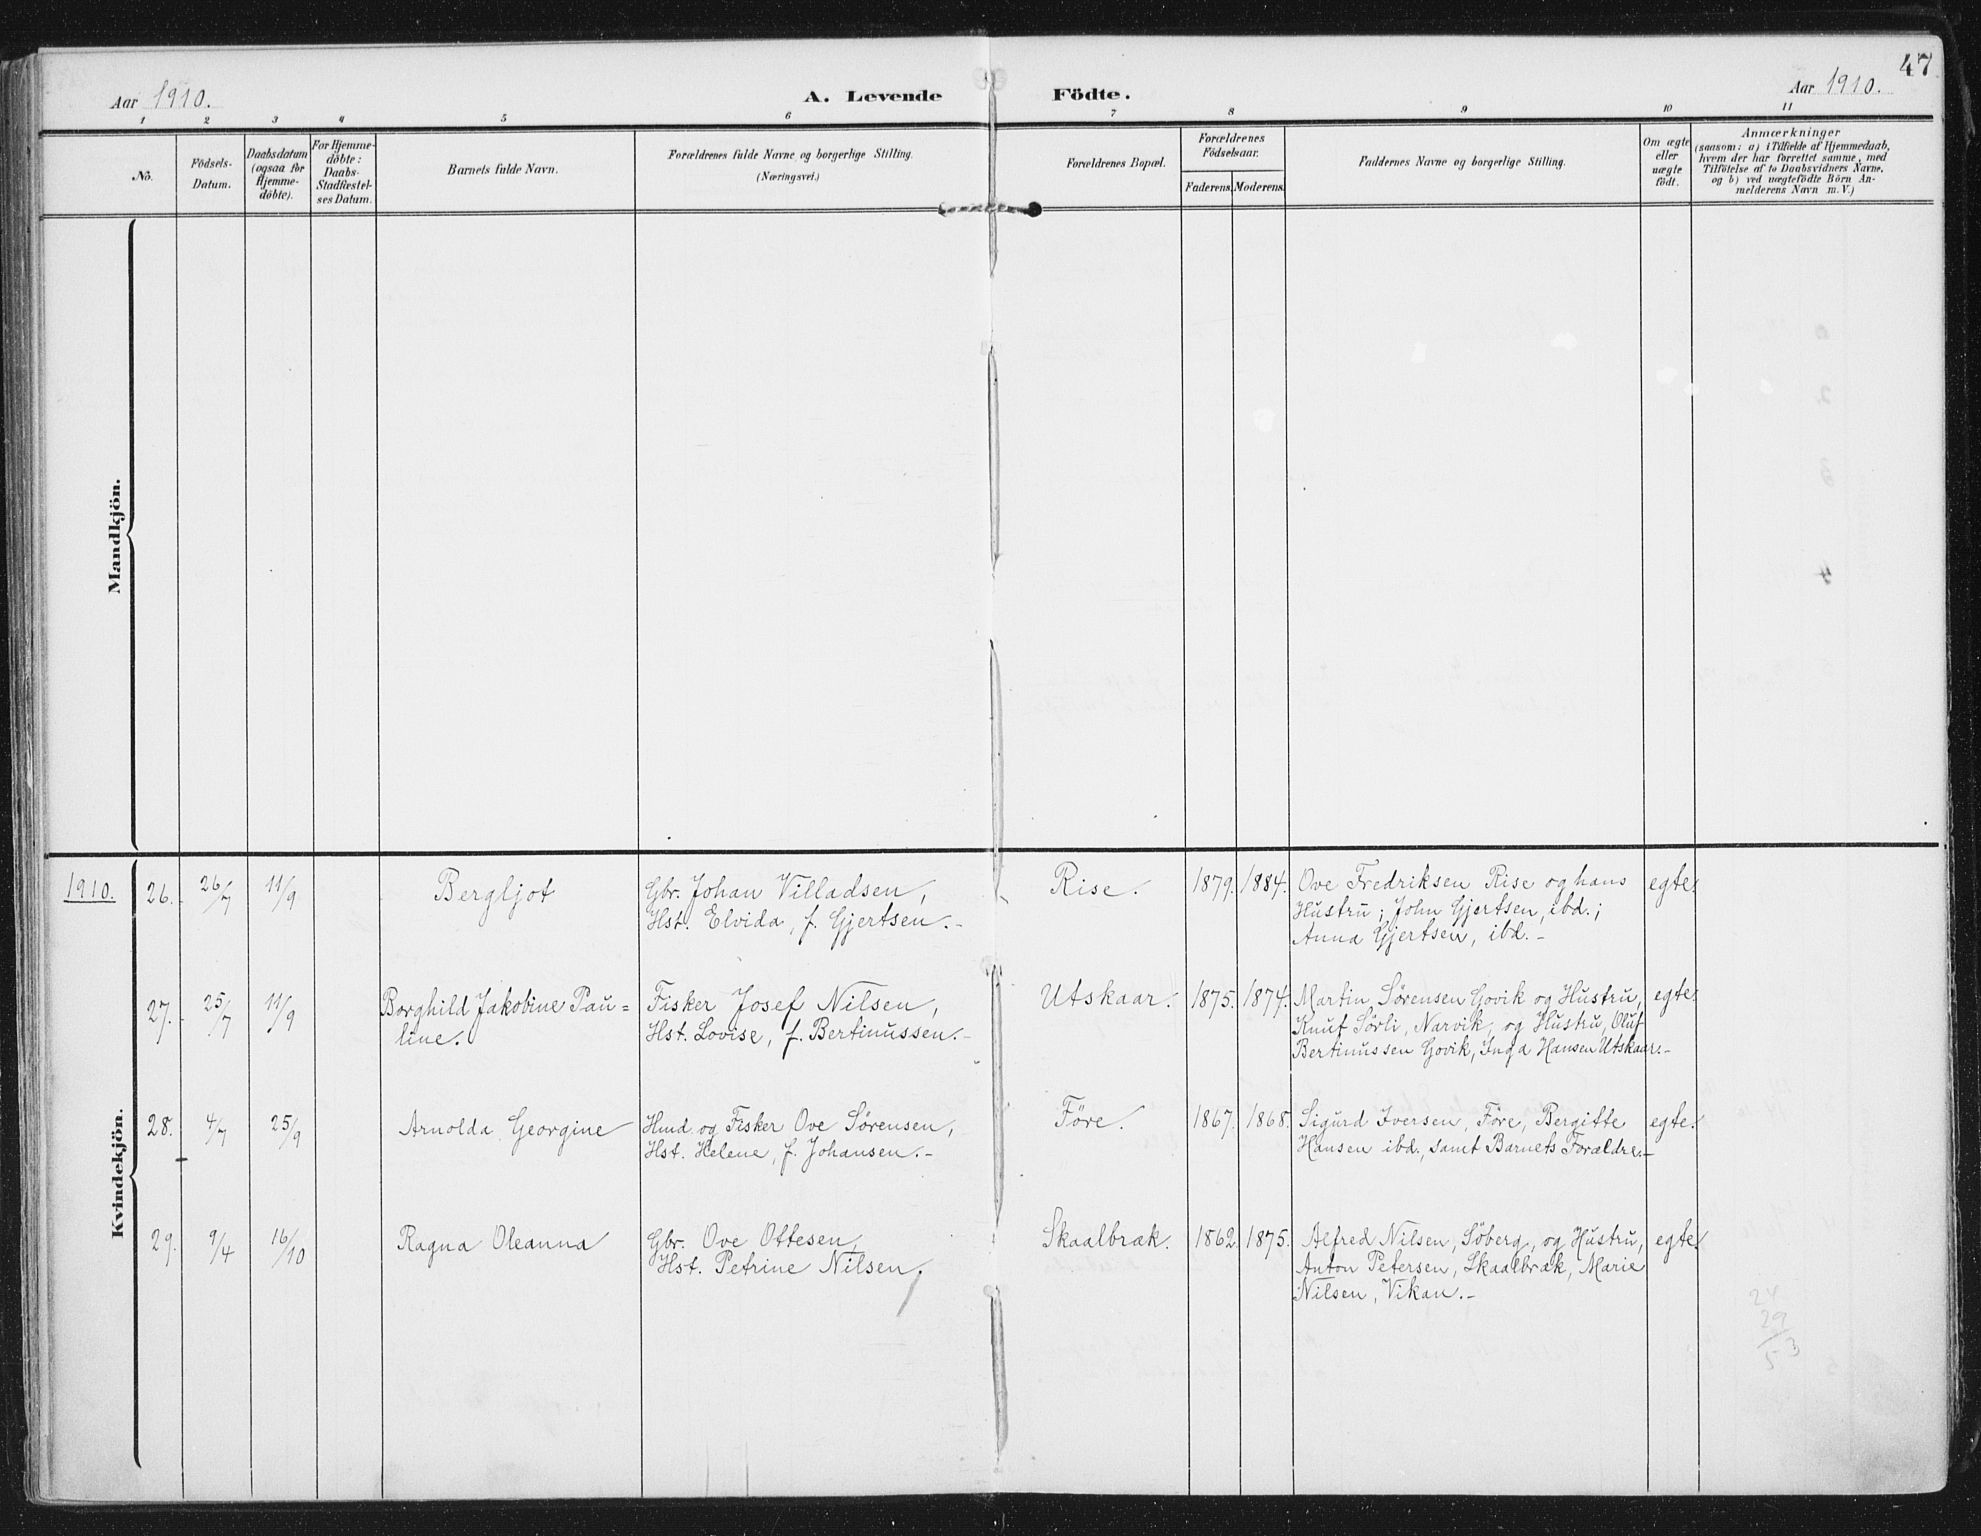 47
Aar 1910.
A. Levende Födte.
Aar 1910.
1 2 3 4 5 6 7 8 9 10 11
No.
Födsels-
Datum.
Daabsdatum
(ogsaa for
Hjemme-
döbte).
For Hjemme-
döbte:
Daabs-
Stadfæstel-
ses Datum.
Barnets fulde Navn.
Forældrenes fulde Navne og borgerlige Stilling.
(Næringsvei.)
Forældrenes Bopæl.
Forældrenes
Födselsaar.
Faderens.
Moderens.
Faddernes Navne og borgerlige Stilling.
Om ægte
eller
uægte
födt.
Anmærkninger
(saasom: a) i Tilfælde af Hjemmedaab,
hvem der har forrettet samme, med
Tilföielse af to Daabsvidners Navne,
og b) ved uægtefödte Börn An-
melderens Navn m. V.)
Mandkjön.
Kvindekjön.
1910.
26. 26/7 11/9 Bergljot
Gbr. Johan Villadsen,
Hst. Elvida, f. Gjertsen.-
Rise. 1879. 1884.
Ove Fredriksen Rise og hans
Hustru; John Gjertsen, ibd.;
Anna Gjertsen, ibd.-
egte.
27. 25/7 11/9 Borghild Jakobine Pau=
line.
Fisker Josef Nilsen,
Hst. Lovise, f. Bertinussen.-
Utskaar. 1875. 1874.
Martin Sørensen Govik og Hustru,
Knut Sørli, Narvik, og Hustru, Oluf
Bertinussen Govik, Inga Hansen Utskaar.-
egte.
28. 4/7 25/9 Arnolda Georgine
Hmd og Fisker Ove Sørensen,
Hst. Helene, f. Johansen.-
Føre. 1867. 1868.
Sigurd Iversen, Føre, Bergitte
Hansen ibd., samt Barnets Forældre.-
egte.
29. 9/4 16/10 Ragna Oleanna
Gbr. Ove Ottesen,
Hst. Petrine Nilsen.
Skaalbræk. 1862. 1875.
Alfred Nilsen, Søberg, og Hustru,
Anton Petersen, Skaalbræk, Marie
Nilsen, Vikan.-
egte.
24
29
53